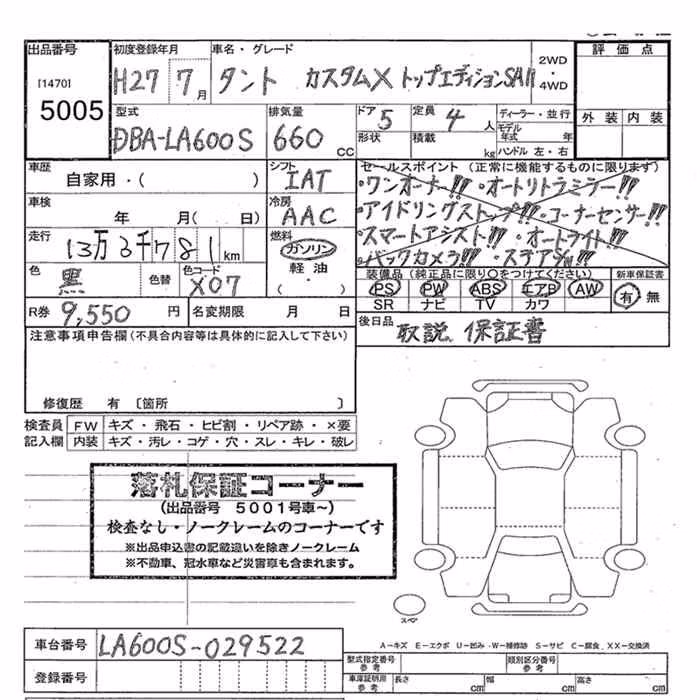 出品番号
[1470]
5005
初度登録年月
H27 7月
車名・グレード
タント カスタムX トップエディションSAII
2WD
・
4WD
評価点
外装 内装
型式
DBA-LA600S
排気量
660 CC
ドア 5
形状
定員 4 人
積載 kg
ディーラー・並行
モデル年式 年
ハンドル 左・右
車歴
自家用・( )
シフト
IAT
車検
年 月( 日)
冷房
AAC
走行
13万3千781km
燃料
ガソリン
軽油
( ・ )
色 黒
色替
色コード X07
セールスポイント (正常に機能するものに限ります)
・ワンオーナー!! ・オートリトラミラー!!
・アイドリングストップ!! ・コーナーセンサー!!
・スマートアシスト!! ・オートライト!!
・バックカメラ!! ・ステアSW!!
装備品 (純正品に限り○をつけてください)
PS PW ABS エアB AW
SR ナビ TV カワ
新車保証書
有・無
R券 9,550 円
名変期限 月 日
後日品 取説、保証書
注意事項申告欄(不具合内容等は具体的に記入して下さい)
修復歴 有 〔箇所 〕
検査員 FW キズ ・ 飛石 ・ ヒビ割 ・ リペア跡 ・ ×要
記入欄 内装 キズ・汚レ・コゲ・穴・スレ・キレ・破レ
落札保証コーナー
(出品番号 5001号車~)
検査なし・ノークレームのコーナーです
※出品申込書の記載違いを除きノークレーム
※不動車、冠水車など災害車も含まれます。
スペア
A-キズ E-エクボ U-凹み W-補修跡 S-サビ C-腐食 XX-交換済
車台番号 LA600S-029522
登録番号
型式指定番号
参考
類別区分番号
参考
車庫証明用
参考
長さ cm 幅 cm 高さ cm